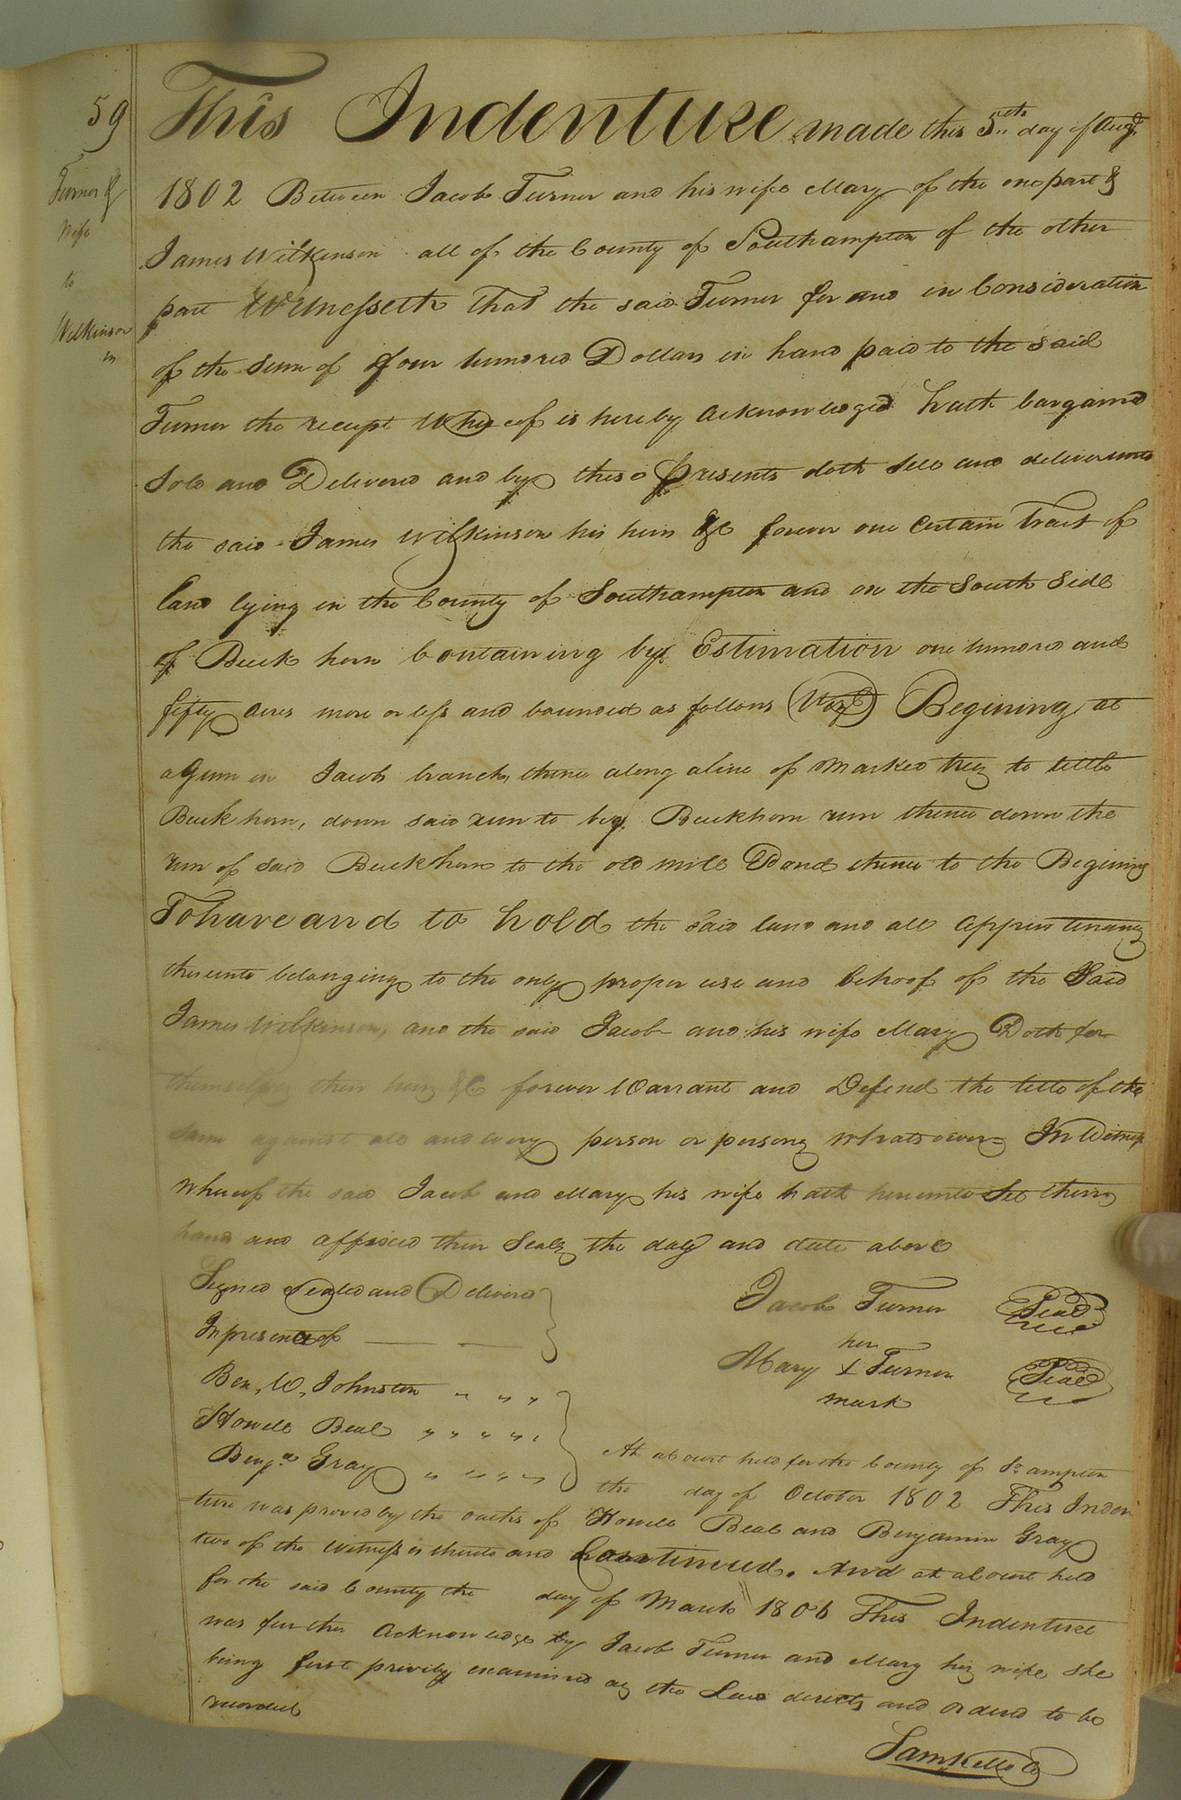 59
Turner &
Wife
to
Wilkinson
This Indenture made this 5th day of Augt
1802 Between Jacob Turner and his wife Mary of the one part &
James Wilkinson all of the County of Southampton of the other
part Witnesseth That the said Turner for and in Consideration
of the Sum of four hundred Dollars in hand paid to the said
Turner the receipt Whereof is hereby Acknowledged hath bargained
Sold and Delivered and by these presents doth Sell and deliver unto
the said James Wilkinson his heirs &c forever one Certain Tract of
land lying in the County of Southampton and on the South Side
of Buck horn Containing by Estimation one hundred and
fifty acres more or less and bounded as follows (Viz) Begining at
a Gum in Jacobs branch, thence along a line of Marked trees to little
Buck horn, down said run to big Buckhorn run thence down the
run of said Buckhorn to the old mill Pond thence to the Begining
To have and to hold the said land and all appurtenances
thereunto belonging to the only proper use and behoof of the Said
James Wilkinson, and the said Jacob and his wife Mary Doth for
themselves their heirs &c forever Warrant and Defend the title of the
same against all and every person or persons Whatsoever In Witness
Whereof the said Jacob and Mary his wife hath hereunto Set their
hand and affixed their Seals the day and date above
Signed Sealed and Delivered
In presence of
Jacob Turner Seal
her
Mary X Turner Seal
mark
Ben. W. Johnston
Howell Beal
Benja Gray
At a Court held for the County of So ampton
the day of October 1802 This Inden
ture was proved by the oaths of Howell Beal and Benjamin Gray
two of the Witnesses thereto and Continued. And at a Court held
for the said County the day of March 1806 This Indenture
was further Acknowledge by Jacob Turner and Mary his wife she
being first privily examined as the Law directs and ordered to be
recorded
Sam Kello C